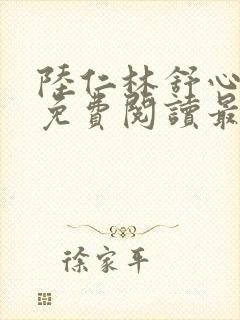 陸仁林舒心
免費閱讀最
徐家平